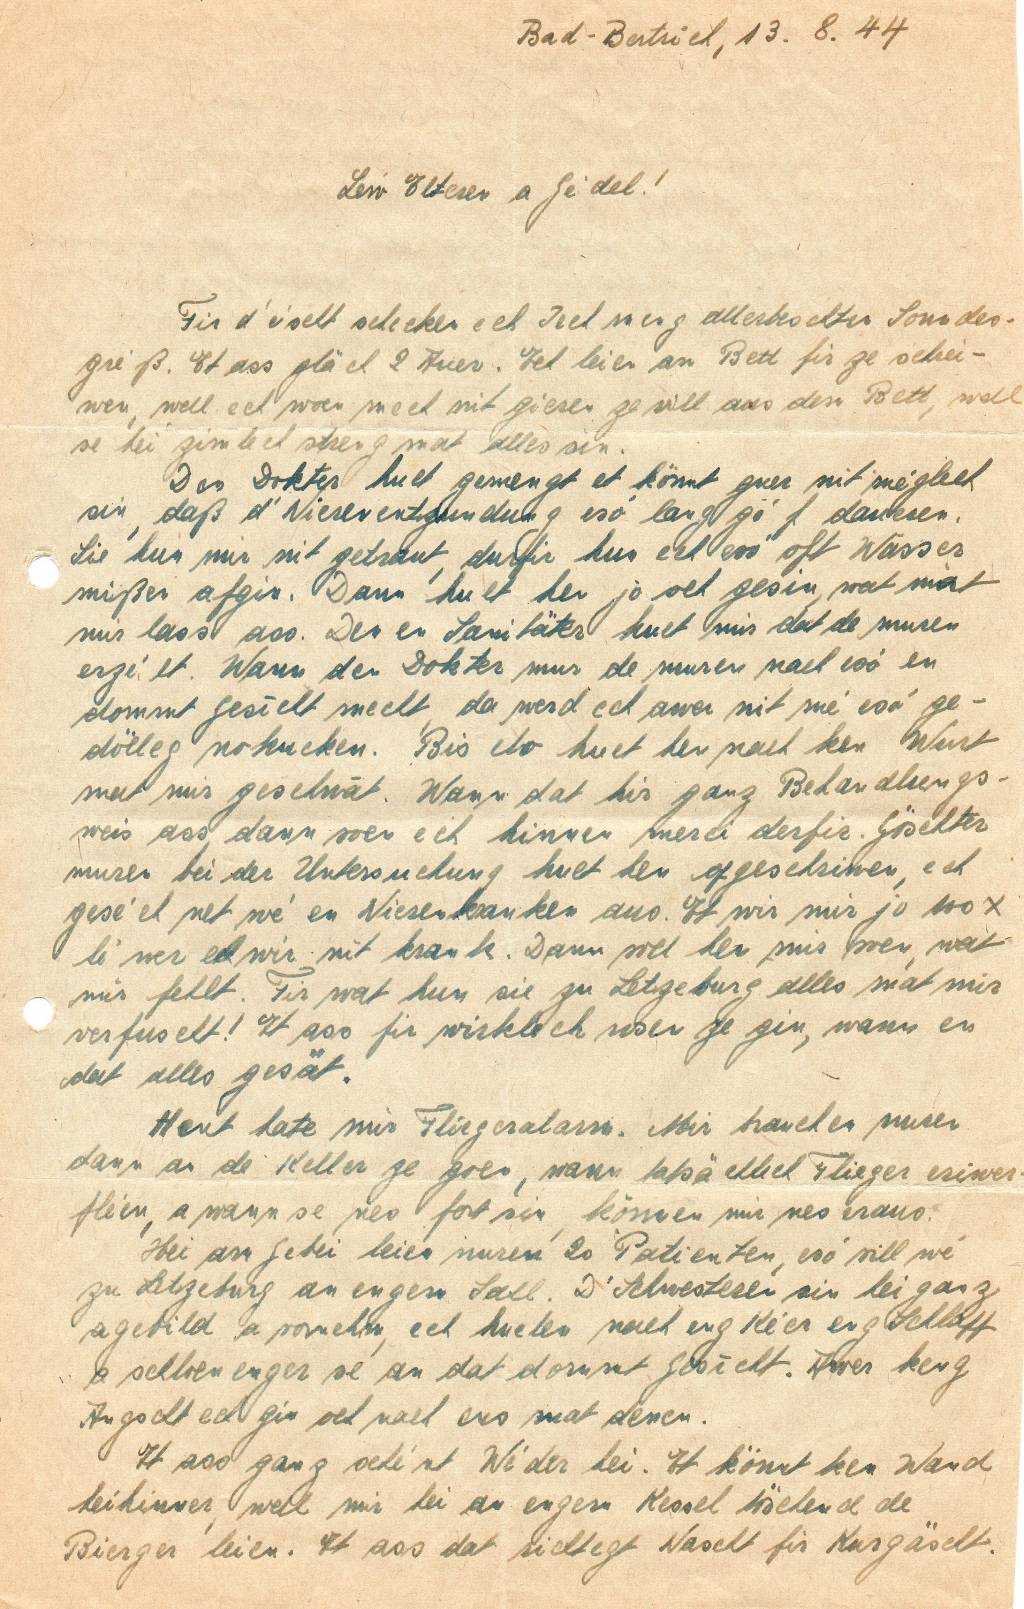 Bad-Bertrich, 13. 8. 44
Léiw Elteren a Gedel!
Fir d'éischt schecken ech Iech meng allerbeschten Sonndes-
gréiß. Et ass gläch 2 Auer. Ech leien am Bett fir ze schrei-
wen, well ech woen mech nit gieren ze vill aus dem Bett, well
se hei zimlech streng mat alles sin.
Den Dokter huet gemengt et könnt guer nit méiglech
sin, daß d'Nierenentzündung esó lang gó f daueren.
Sie hun mir nit getraut, durfir hun ech esó oft Wasser
mißen afgin. Dann huet hen jo och gesin, wat mat
mir lass ass. Den en Sanitäter huet mir dat de muren
erzielt. Wann den Dokter mur de muren nach esó en
dommt Gesicht mecht, da werd ech awer nit mé esó ge-
dölleg nokucken. Bis elo huet hen nach ken Wurt
mat mir geschwät. Wann dat hir ganz Behandlungs-
weis ass, dann soen ech hinnen merci derfir. Göschter
muren bei der Untersuchung huet hen opgeschriwen, ech
geséch net wé en Nierenkranken aus. Et wir mir jo 100 x
léiwer ech wir nit krank. Dann soll hen mir soen, wat
mir fehlt. Fir wat hun sie zu Letzeburg alles mat mir
verfuselt! Et ass fir wirklech rosen ze gin, wann en
dat alles gesät.
Haut hate mir Fliegeralarm. Mir brauchen nuren
dann an de Keller ze goen, wann tatsächlech Flieger eriwer-
fléien, a wann se nes fort sin, können mir nes eraus.
Hei am Gebei leien nuren 20 Patienten, esó vill wé
zu Letzeburg an engem Sall. D'Schwesteren sin hei ganz
agebild a vornehm, ech huelen nach eng Kéier eng Schlapp
a schloen enger se an dat dommt Gesicht. Awer keng
Angscht ech gin och nach ens mat denen.
Et ass ganz schéint Wieder hei. Et könnt ken Wand
heihinner, well mir hei an engem Kessel töschend de
Bierger leien. Et ass dat richtegt Nascht fir Kurgäscht.